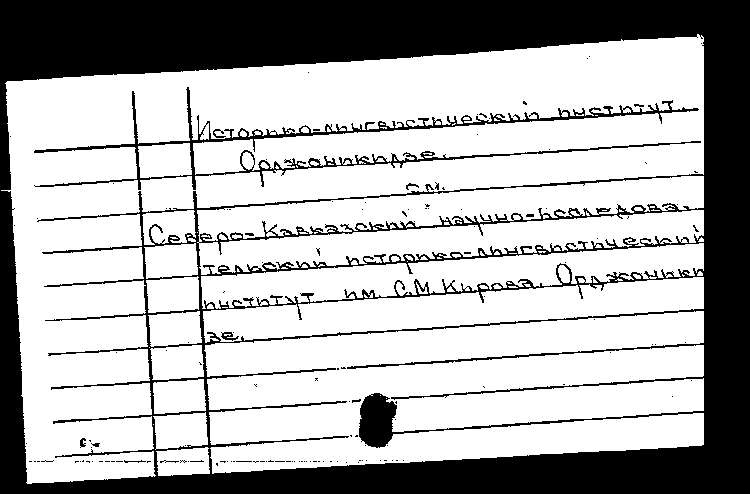 Историко-лингвистический институт.
Орджоникидзе.
см.
Северо-Кавказский научно-исследова-
тельский историко-лингвистический
институт им. С.М. Кирова. Орджоники
зе.